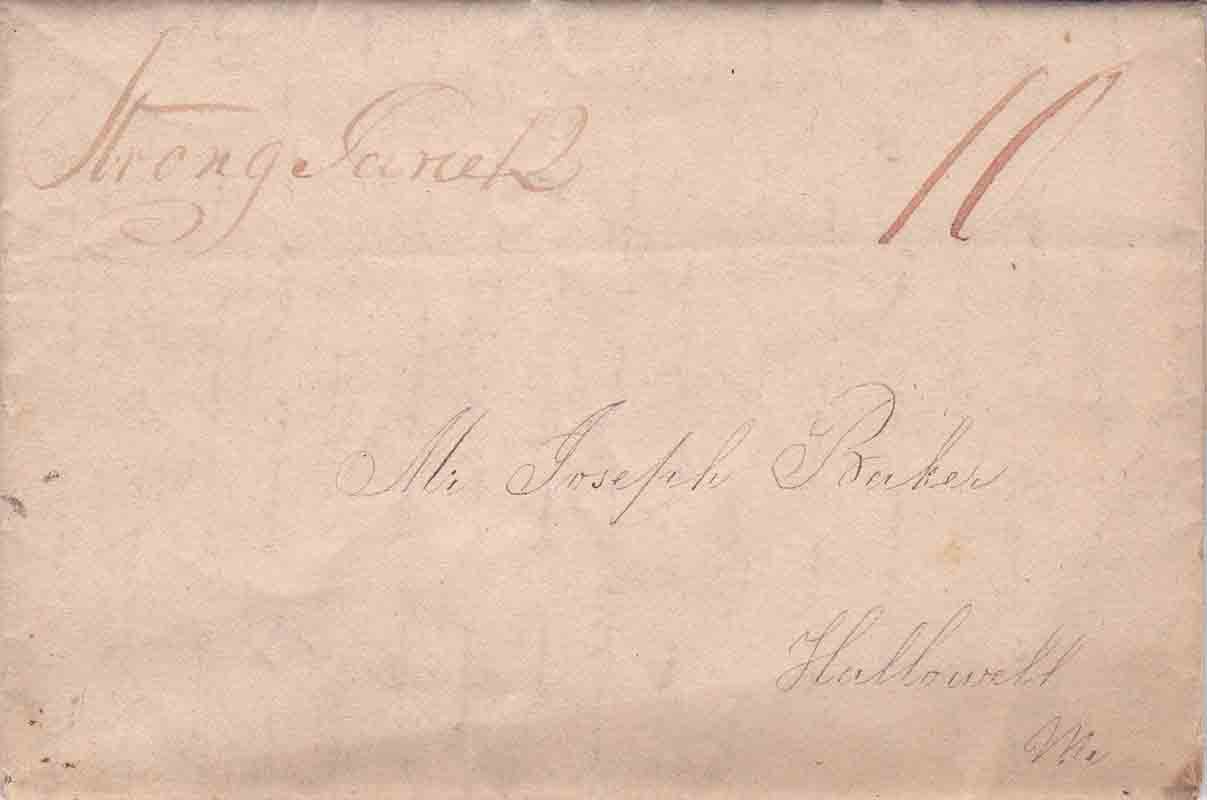 Strong June 12 10
Mr Joseph Baker
Hallowell
Me